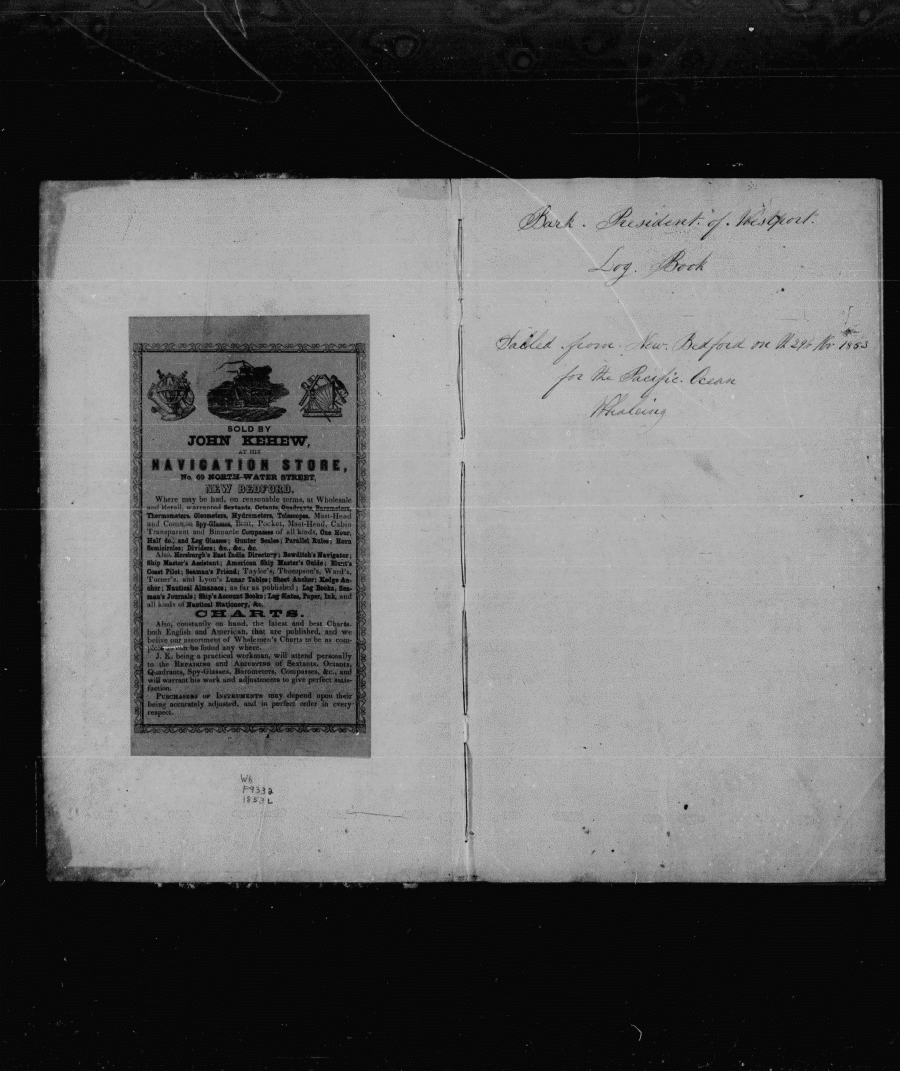 SOLD BY
JOHN KEHEW,
AT HIS
NAVIGATION STORE,
No. 69 NORTH-WATER STREET,
NEW BEDFORD,
Where may be had, on reasonable terms, at Wholesale
and Retail, warranted Sextants, Octants, Quadrants, Barometers,
Thermometers, Oleometers, Hydrometers, Telescopes, Mast-Head
and Common Spy-Glasses, Boat, Pocket, Mast-Head, Cabin
Transparent and Binnacle Compasses of all kinds, One Hour,
Half do., and Log Glasses; Gunter Scales; Parallel Rules; Horn
Semicircles; Dividers; &c., &c., &c.
Also, Horsburgh's East India Directory; Bowditch's Navigator;
Ship Master's Assistant; American Ship Master's Guide; Blunt's
Coast Pilot; Seaman's Friend; Taylor's, Thompson's, Ward's,
Turner's, and Lyon's Lunar Tables; Sheet Anchor; Kedge An-
chor; Nautical Almanacs, as far as published; Log Books, Sea-
man's Journals; Ship's Account Books; Log Slates, Paper, Ink, and
all kinds of Nautical Stationery, &c.
CHARTS.
Also, constantly on hand, the latest and best Charts,
both English and American, that are published, and we
belive our assortment of Whalemen's Charts to be as com-
plete as can be found any where.
J. K. being a practical workman, will attend personally
to the REPAIRING and ADJUSTING of Sextants, Octants,
Quadrants, Spy-Glasses, Barometers, Compasses, &c., and
will warrant his work and adjustments to give perfect satis-
faction.
PURCHASERS OF INSTRUMENTS may depend upon their
being accurately adjusted, and in perfect order in every
respect.
Wh
P933a
1853L
Bark. President. of Westport.
Log. Book
Sailed from New Bedford on 29th Nov 1853
for the Pacific Ocean
Whaleing